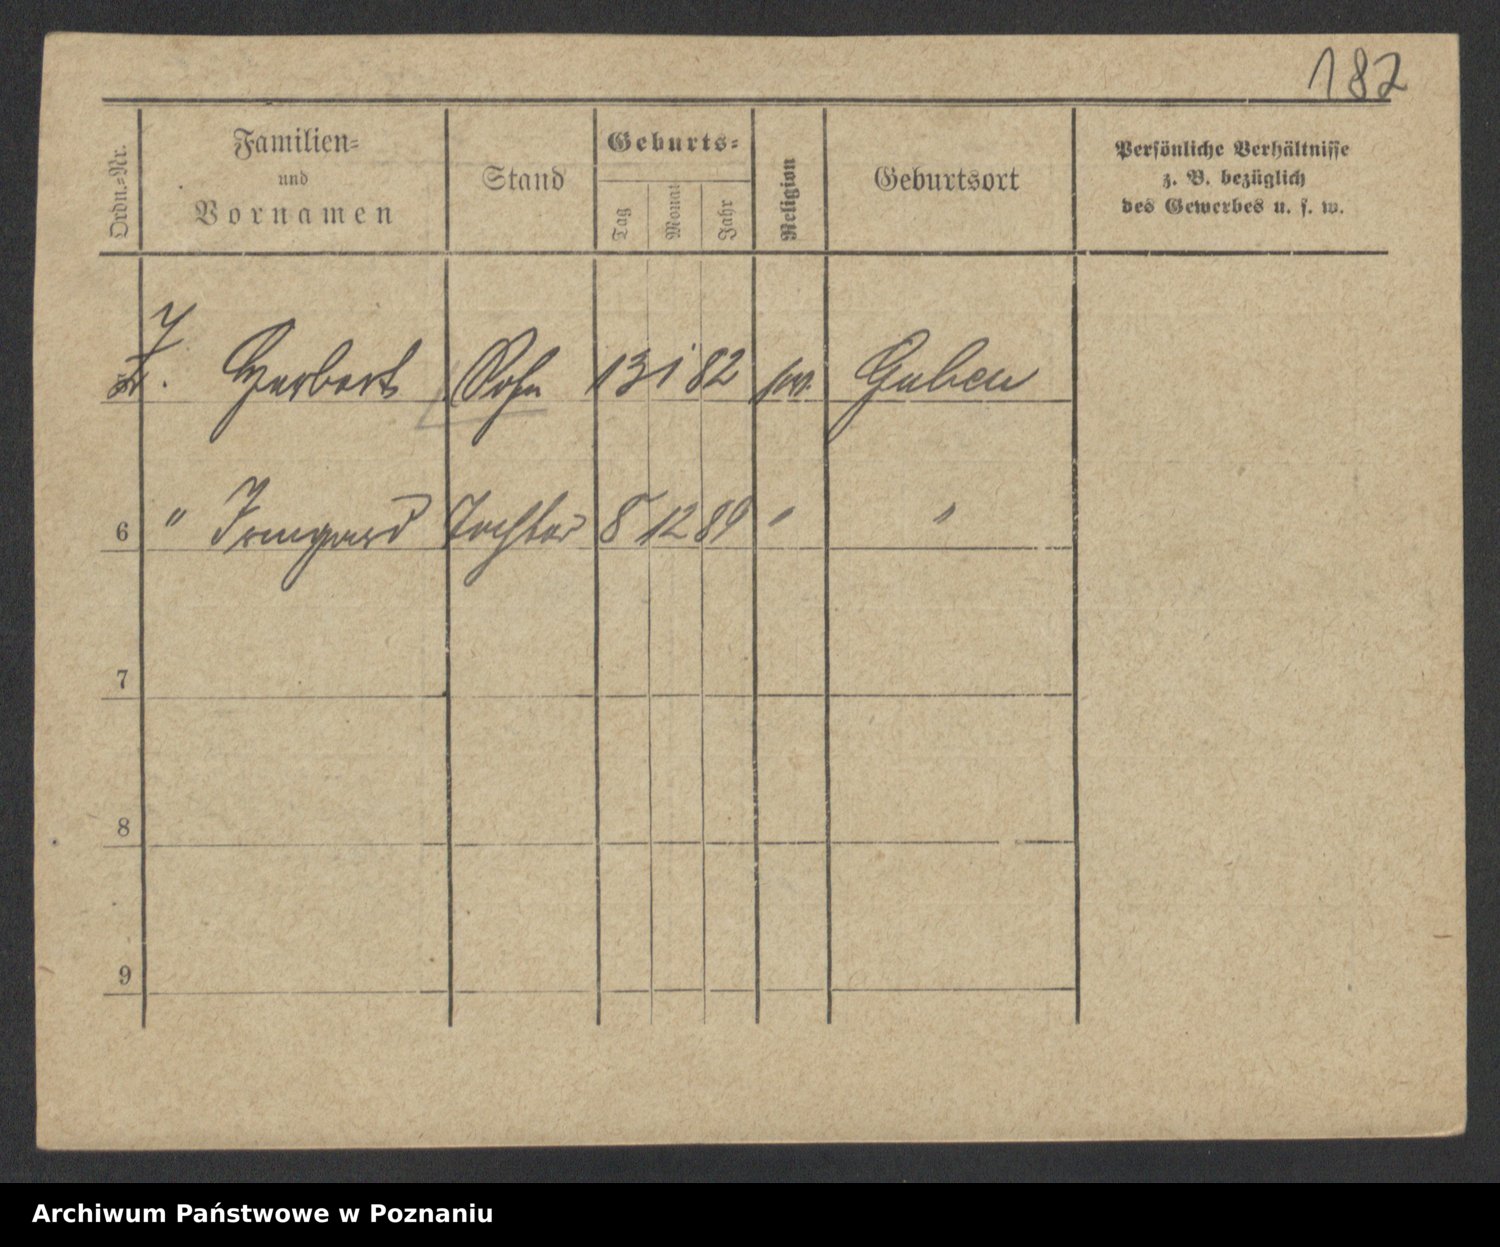 182
Ordn.=Nr.
Familien=
und
Vornamen
Stand
Geburts=
Tag
Monat
Jahr
Religion
Geburtsort
Persönliche Verhältnisse
z. B. bezüglich
des Gewerbes u. s. w.
Herbert Sohn 13 1 82 Guben
6 " Irmgard Tochter 8 12 89 " "
7
8
9
Archiwum Państwowe w Poznaniu